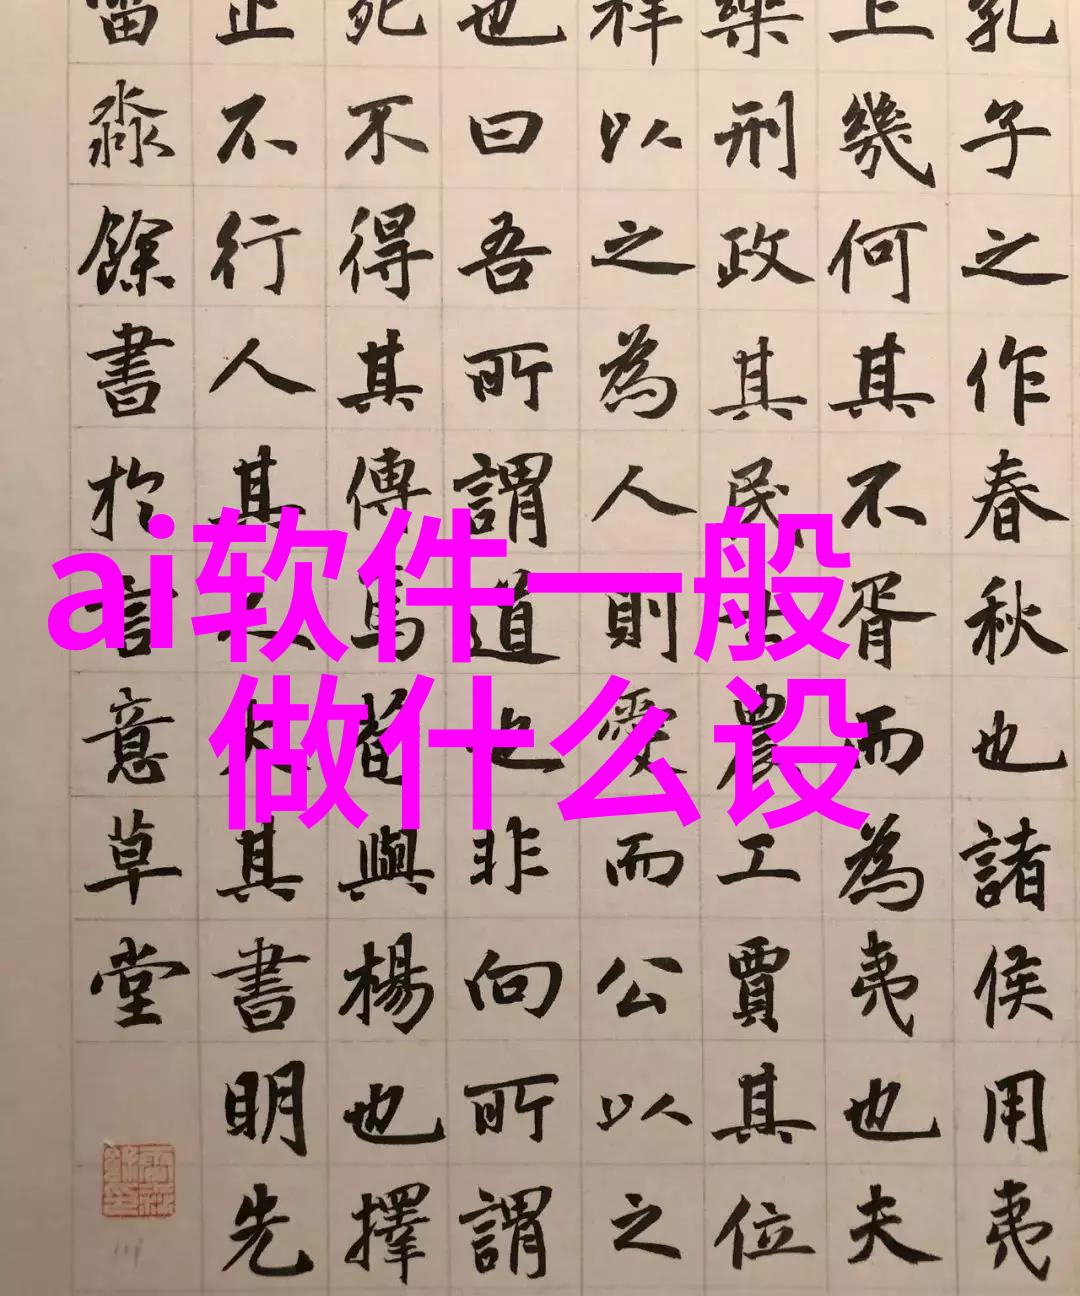 孔子之作春秋也諸侯用夷
上幾何其不胥而為夷也夫
樂刑政其民士農工賈其位
祥以之為人則愛而公以之
也曰吾所謂道也非向所謂
死不得其傳焉荀與楊也擇
止不行人其人火其書明先
淼餘書於言意草堂
ai软件一般
做什么设